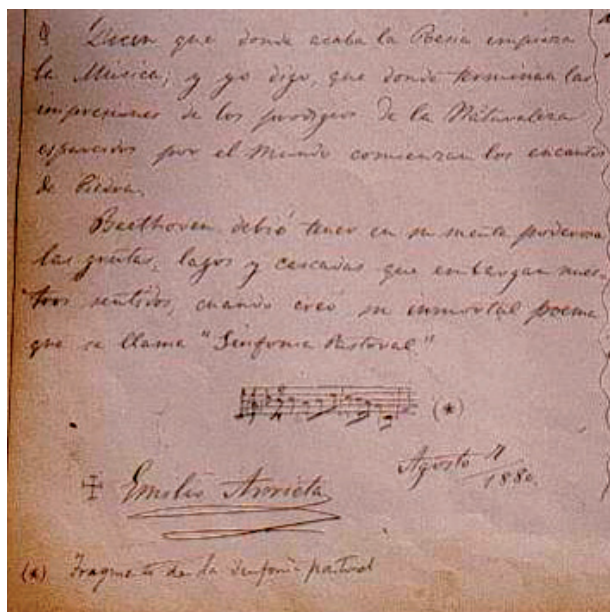 Dicen que donde acaba la Poesia empieza
la Música; y yo digo, que donde terminan las
impresiones de los prodigios de la Naturaleza
esparcidos por el Mundo comienzan los encantos
de Piedra.
Beethoven debió tener en su mente poderosa
las grutas, lagos y cascadas que embargan nues-
tros sentidos, cuando creó su inmortal poema
que se llama "Sinfonia Pastoral"
(*)
Agosto
1880.
Emilio Arrieta
(*) Fragmento de la sinfonia pastoral